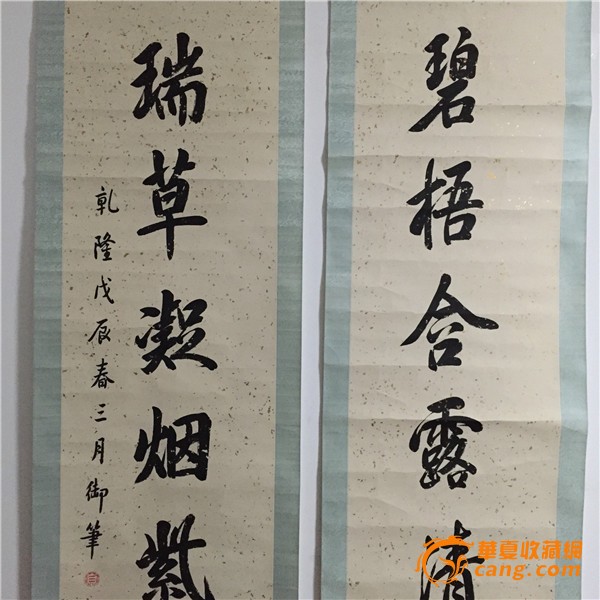 碧梧合露清
瑞草凝烟紫
乾隆戊辰春三月御筆
華夏收藏網
cang.com